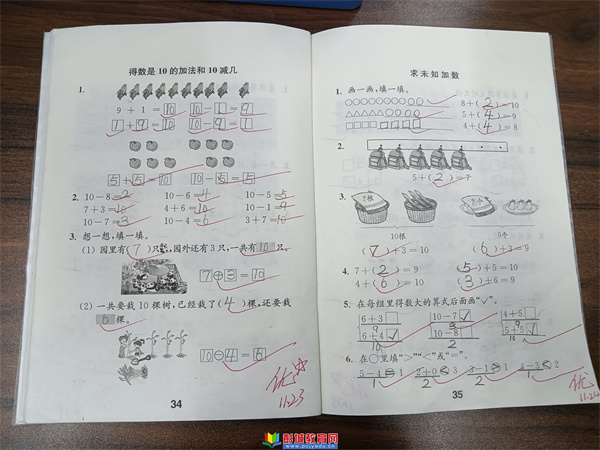 得数是 10 的加法和 10 减几
1.
9 + 1 = 10 10 - 1 = 9
1 + 9 = 10 10 - 9 = 1
5 + 5 = 10 10 - 5 = 5
2. 10 - 8 = 2 10 - 6 = 4 10 - 5 = 5
7 + 3 = 10 4 + 6 = 10 10 - 1 = 9
10 - 7 = 3 10 - 4 = 6 3 + 7 = 10
3. 想一想,填一填。
(1) 园里有(7)只,园外还有 3 只,一共有 10 只。
7 + 3 = 10
(2) 一共要栽 10 棵树,已经栽了(4)棵,还要栽
6 棵。
10 - 4 = 6
优
11.23
34
求未知加数
1. 画一画,填一填。
8 + (2) = 10
5 + (4) = 9
4 + (4) = 8
2.
5 + (2) = 7
3.
7根
?个
10根 9个
(7) + 3 = 10 (6) + 3 = 9
4. 7 + (2) = 9 (5) + 5 = 10
4 + (6) = 10 (8) + 2 = 10
5. 在每组里得数大的算式后面画“✓”。
6 + 3 10 - 7 ✓ 4 + 5
9 3 9
6 + 4 ✓ 10 - 8 5 + 5 ✓
10 2 10
6. 在○里填“>”“<”或“=”。
5 - 4 = 1 2 + 0 < 3 3 - 1 > 1 4 - 3 < 2
1 2 2 1
优
35
彭城教育网
www.pcjyedu.cn